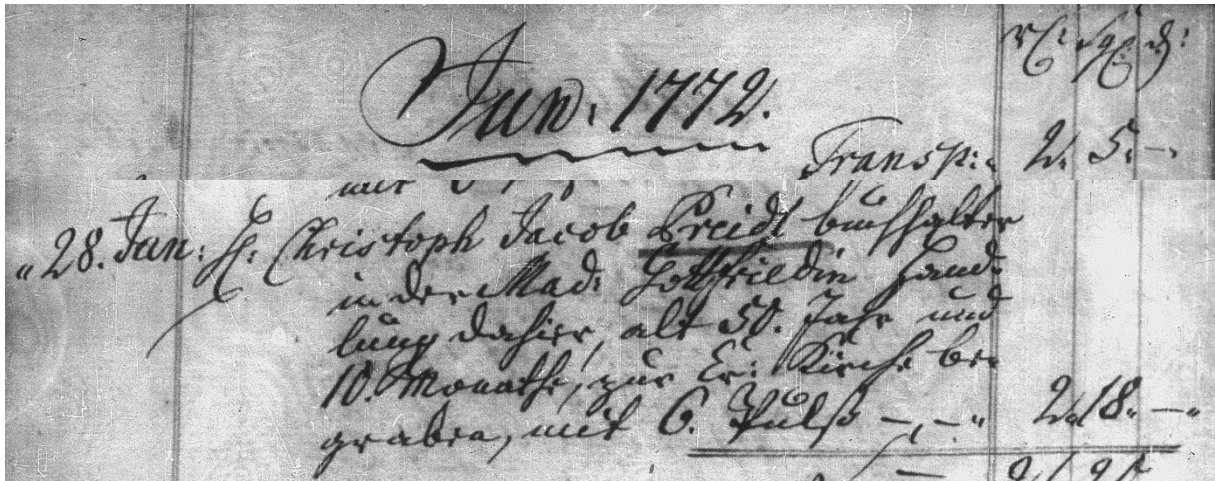 rl: sgl: d:
Jan: 1772.
Transp:. 2. 5. -.
mit 6
"28. Jan: H: Christoph Jacob Preidt buchhalter
in der Mad: Gottfriedin Hand-
lung dahier, alt 50. Jahr und
10. Monathe, zur Er: Kirche be-
graben, mit 6. Pulß -,-" 2. 18. -"